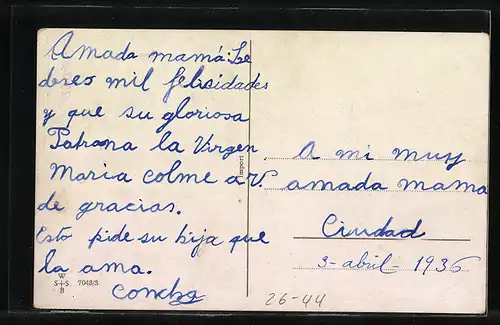 Amada mamá: Le
deseo mil felicidades
y que su gloriosa
Patrona la Virgen
Maria colme a V.
de gracias.
Esto pide su hija que
la ama.
Concha
W
S+S
B
7048/3
Import
A mi muy
amada mama
Ciudad
3-abril-1936
26-44